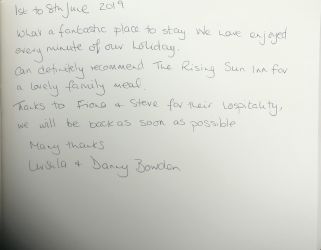 1st to 8th June 2019
What a fantastic place to stay We have enjoyed
every minute of our holiday.
Can definitely recommend The Rising Sun Inn for
a lovely family meal.
Thanks to Fiona & Steve for their hospitality,
we will be back as soon as possible
Many thanks
& Danny Bowden